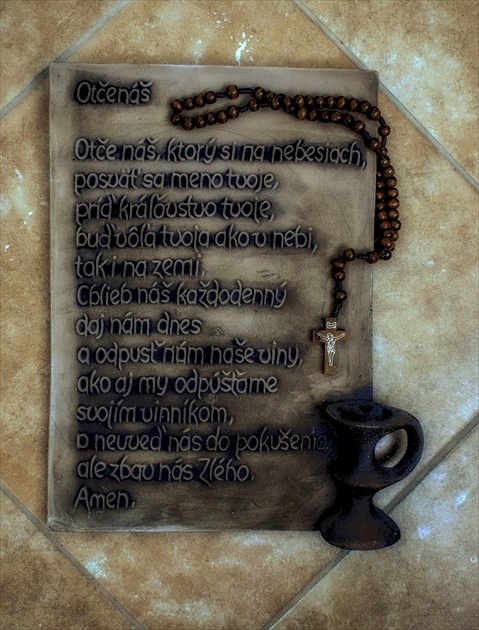 Otčenáš
Otče náš, ktorý si na nebesiach,
posväť sa meno tvoje,
príď kráľovstvo tvoje,
buď vôľa tvoja ako v nebi,
tak i na zemi.
Chlieb náš každodenný
daj nám dnes
a odpusť nám naše viny,
ako aj my odpúšťame
svojím vinníkom,
a neuveď nás do pokušenia,
ale zbav nás Zlého.
Amen.